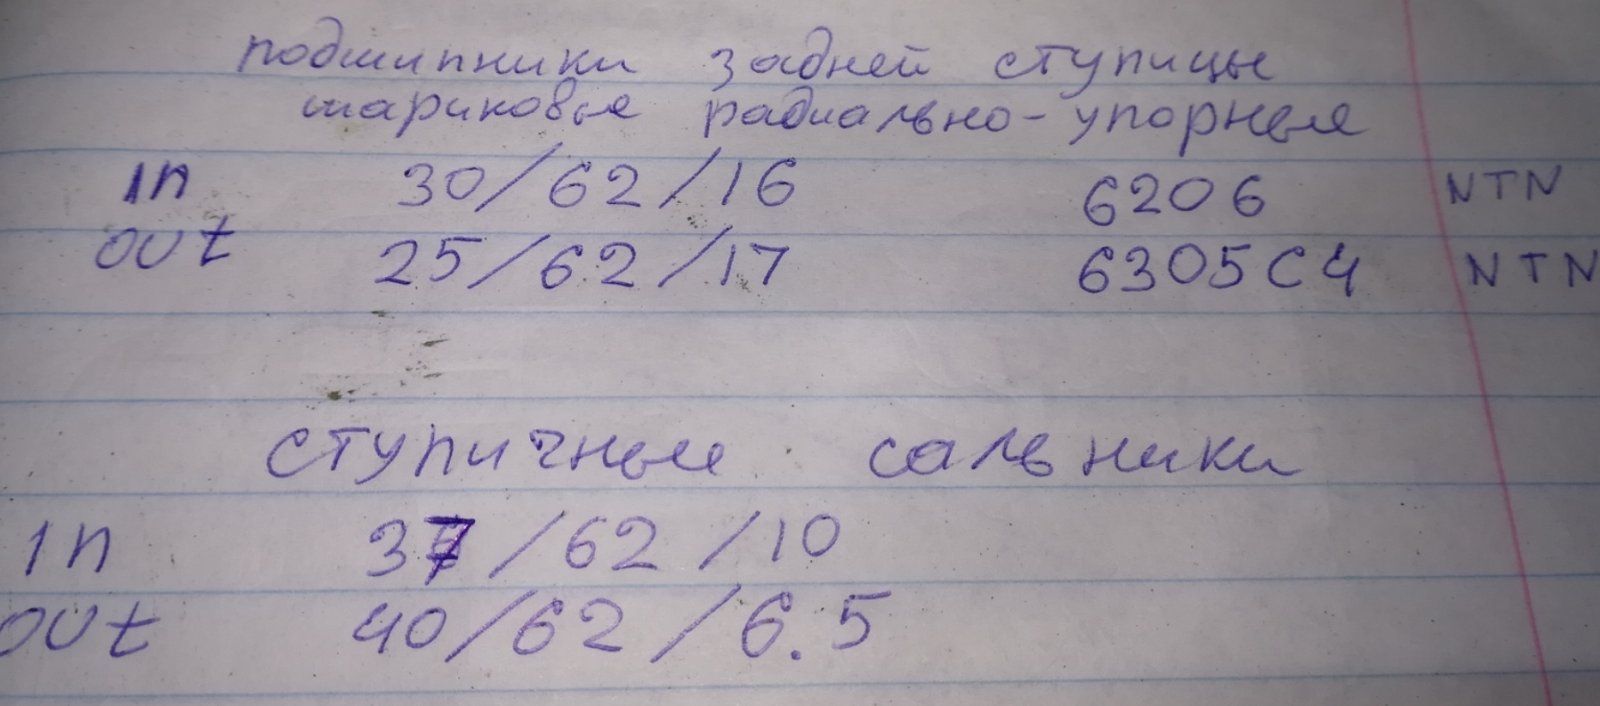 подшипники задней ступицы
шариковые радиально-упорные
in 30/62/16 6206 NTN
out 25/62/17 6305C4 NTN
ступичные сальники
in 37/62/10
out 40/62/6.5